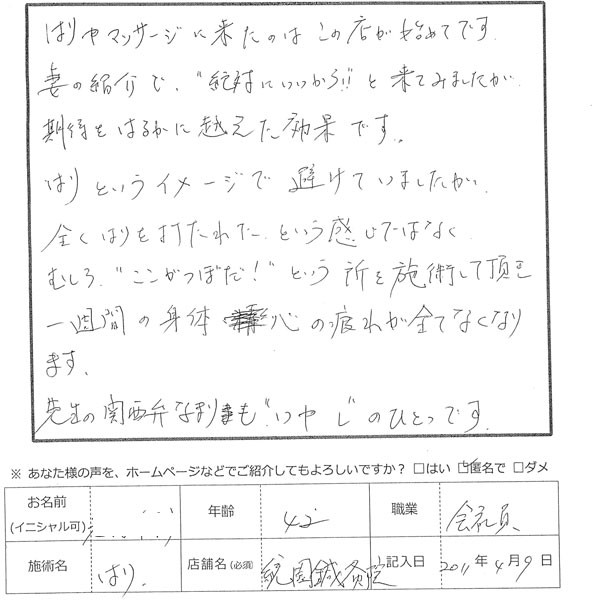 はりやマッサージに来たのはこの店が始めてです
妻の紹介で、"絶対にいいから!!"と来てみましたが
期待をはるかに越えた効果です。
はりというイメージで避けていましたが、
全くはりを打たれた、という感じではなく
むしろ、"ここがつぼだ!"という所を施術して頂き
一週間の身体 心の疲れが全てなくなり
ます。
先生の関西弁なまりも"いやし"のひとつです。
※ あなた様の声を、ホームページなどでご紹介してもよろしいですか? □はい ☑匿名で □ダメ
お名前 (イニシャル可) 年齢 42 職業 会社員
施術名 はり. 店舗名 (必須) 鍼灸院 ご記入日 2011年4月9日